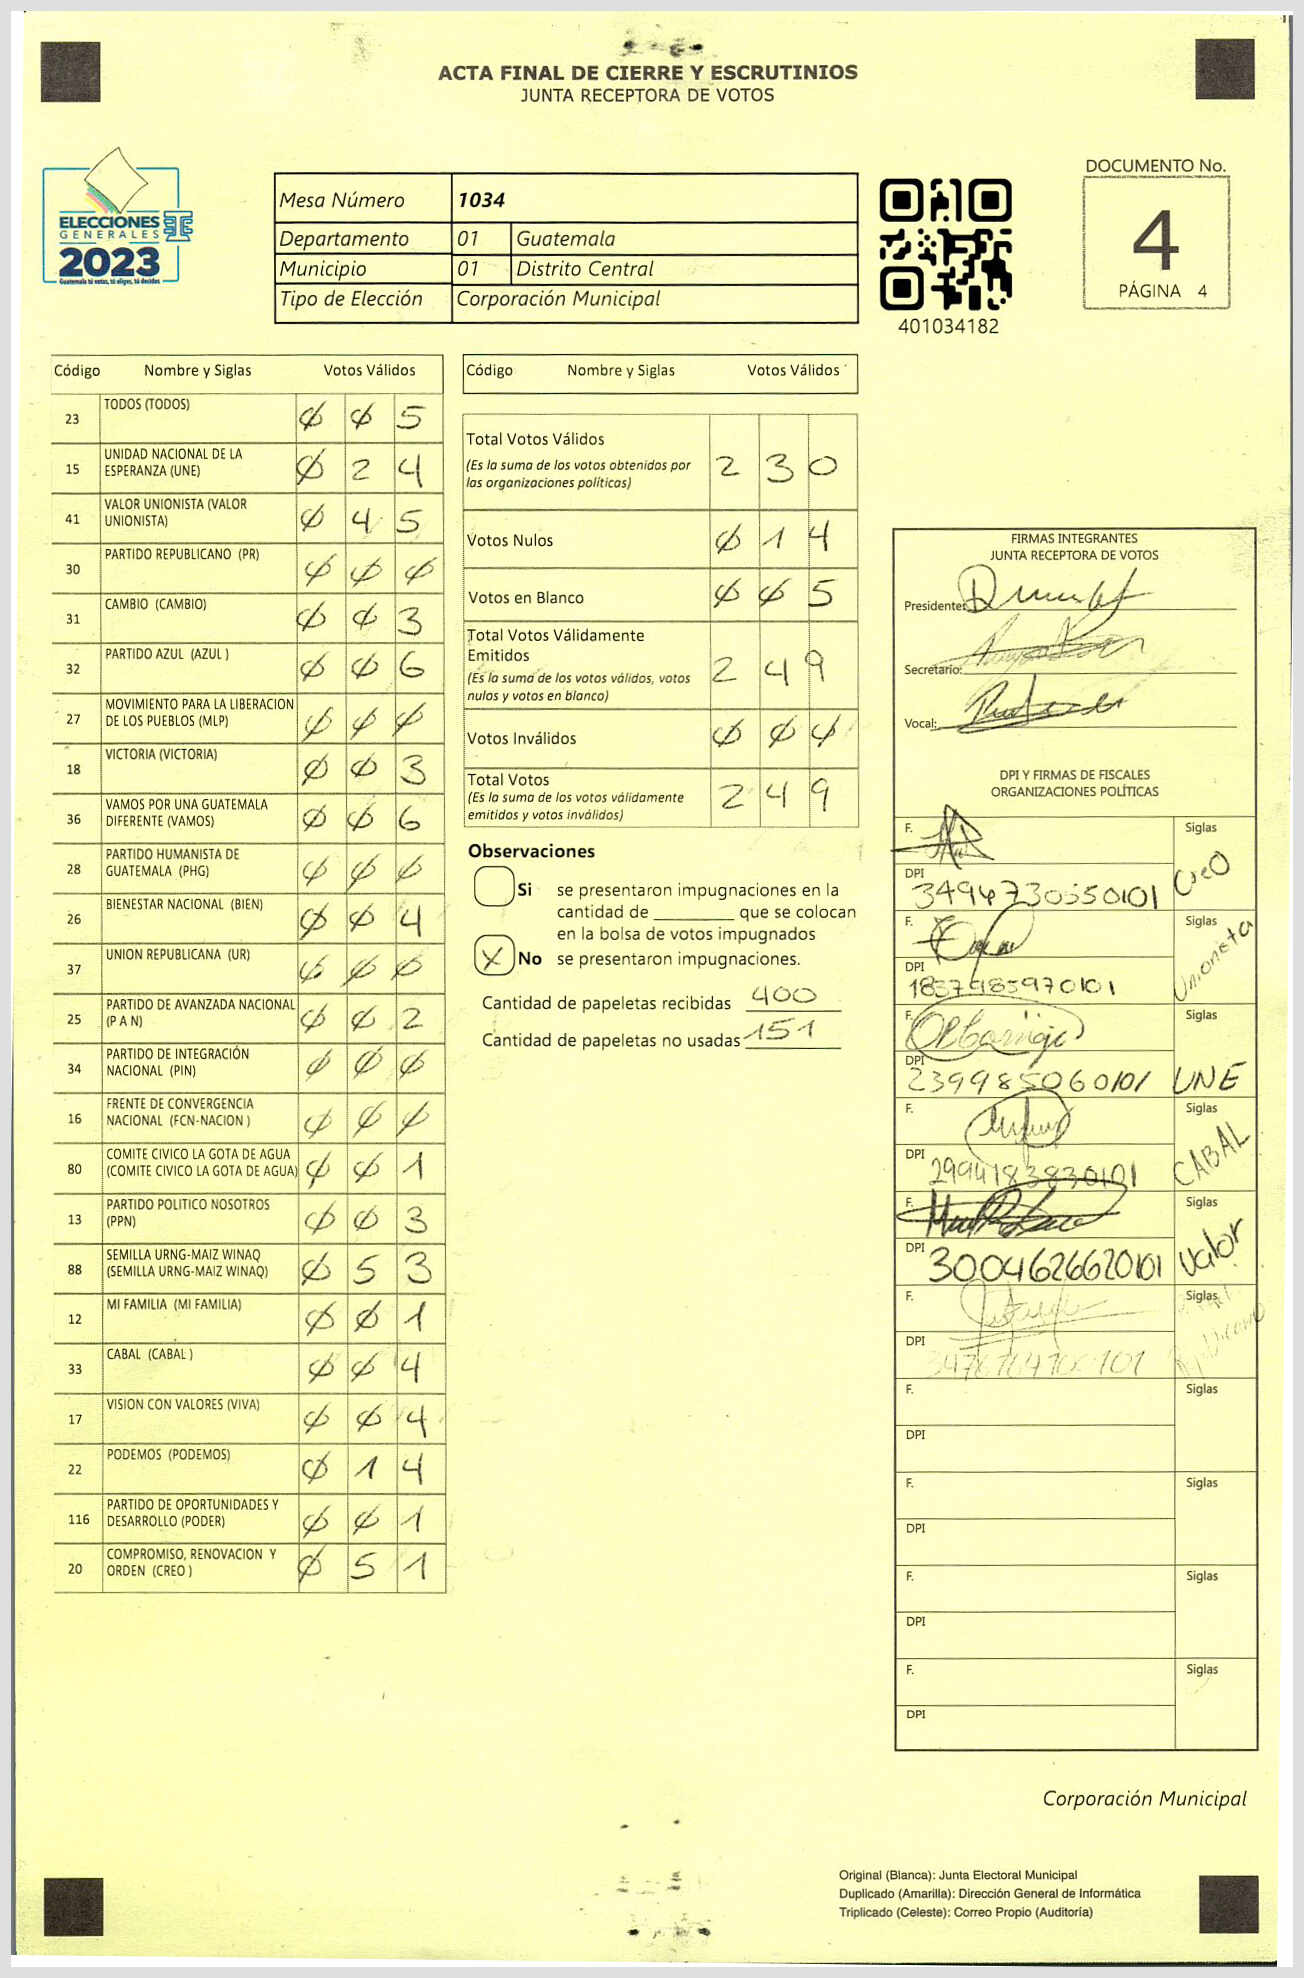 ACTA FINAL DE CIERRE Y ESCRUTINIOS
JUNTA RECEPTORA DE VOTOS
ELECCIONES
GENERALES
2023
Guatemala tú votas, tú eliges, tú decides
Mesa Número 1034
Departamento 01 Guatemala
Municipio 01 Distrito Central
Tipo de Elección Corporación Municipal
401034182
DOCUMENTO No.
4
PÁGINA 4
Código Nombre y Siglas Votos Válidos
23 TODOS (TODOS) 0 0 5
15 UNIDAD NACIONAL DE LA
ESPERANZA (UNE) 0 2 4
41 VALOR UNIONISTA (VALOR
UNIONISTA) 0 4 5
30 PARTIDO REPUBLICANO (PR) 0 0 0
31 CAMBIO (CAMBIO) 0 0 3
32 PARTIDO AZUL (AZUL ) 0 0 6
27 MOVIMIENTO PARA LA LIBERACION
DE LOS PUEBLOS (MLP) 0 0 0
18 VICTORIA (VICTORIA) 0 0 3
36 VAMOS POR UNA GUATEMALA
DIFERENTE (VAMOS) 0 0 6
28 PARTIDO HUMANISTA DE
GUATEMALA (PHG) 0 0 0
26 BIENESTAR NACIONAL (BIEN) 0 0 4
37 UNION REPUBLICANA (UR) 0 0 0
25 PARTIDO DE AVANZADA NACIONAL
(P A N) 0 0 2
34 PARTIDO DE INTEGRACIÓN
NACIONAL (PIN) 0 0 0
16 FRENTE DE CONVERGENCIA
NACIONAL (FCN-NACION ) 0 0 0
80 COMITE CIVICO LA GOTA DE AGUA
(COMITE CIVICO LA GOTA DE AGUA) 0 0 1
13 PARTIDO POLITICO NOSOTROS
(PPN) 0 0 3
88 SEMILLA URNG-MAIZ WINAQ
(SEMILLA URNG-MAIZ WINAQ) 0 5 3
12 MI FAMILIA (MI FAMILIA) 0 0 1
33 CABAL (CABAL ) 0 0 4
17 VISION CON VALORES (VIVA) 0 0 4
22 PODEMOS (PODEMOS) 0 1 4
116 PARTIDO DE OPORTUNIDADES Y
DESARROLLO (PODER) 0 0 1
20 COMPROMISO, RENOVACION Y
ORDEN (CREO ) 0 5 1
Código Nombre y Siglas Votos Válidos
Total Votos Válidos
(Es la suma de los votos obtenidos por
las organizaciones políticas) 2 3 0
Votos Nulos 0 1 4
Votos en Blanco 0 0 5
Total Votos Válidamente
Emitidos
(Es la suma de los votos válidos, votos
nulos y votos en blanco) 2 4 9
Votos Inválidos 0 0 0
Total Votos
(Es la suma de los votos válidamente
emitidos y votos inválidos) 2 4 9
Observaciones
Si se presentaron impugnaciones en la
cantidad de ________ que se colocan
en la bolsa de votos impugnados
X No se presentaron impugnaciones.
Cantidad de papeletas recibidas 400
Cantidad de papeletas no usadas 151
FIRMAS INTEGRANTES
JUNTA RECEPTORA DE VOTOS
Presidente:
Secretario:
Vocal:
DPI Y FIRMAS DE FISCALES
ORGANIZACIONES POLÍTICAS
F. Siglas
DPI Creo
F. Siglas
DPI 1837985970101 Unionista
F. Siglas
DPI 239985060101 UNE
F. Siglas
DPI 2994183830101 CABAL
F. Siglas
DPI 3004626620101 Valor
F. Siglas
DPI
F. Siglas
DPI
F. Siglas
DPI
F. Siglas
DPI
F. Siglas
DPI
Corporación Municipal
Original (Blanca): Junta Electoral Municipal
Duplicado (Amarilla): Dirección General de Informática
Triplicado (Celeste): Correo Propio (Auditoría)